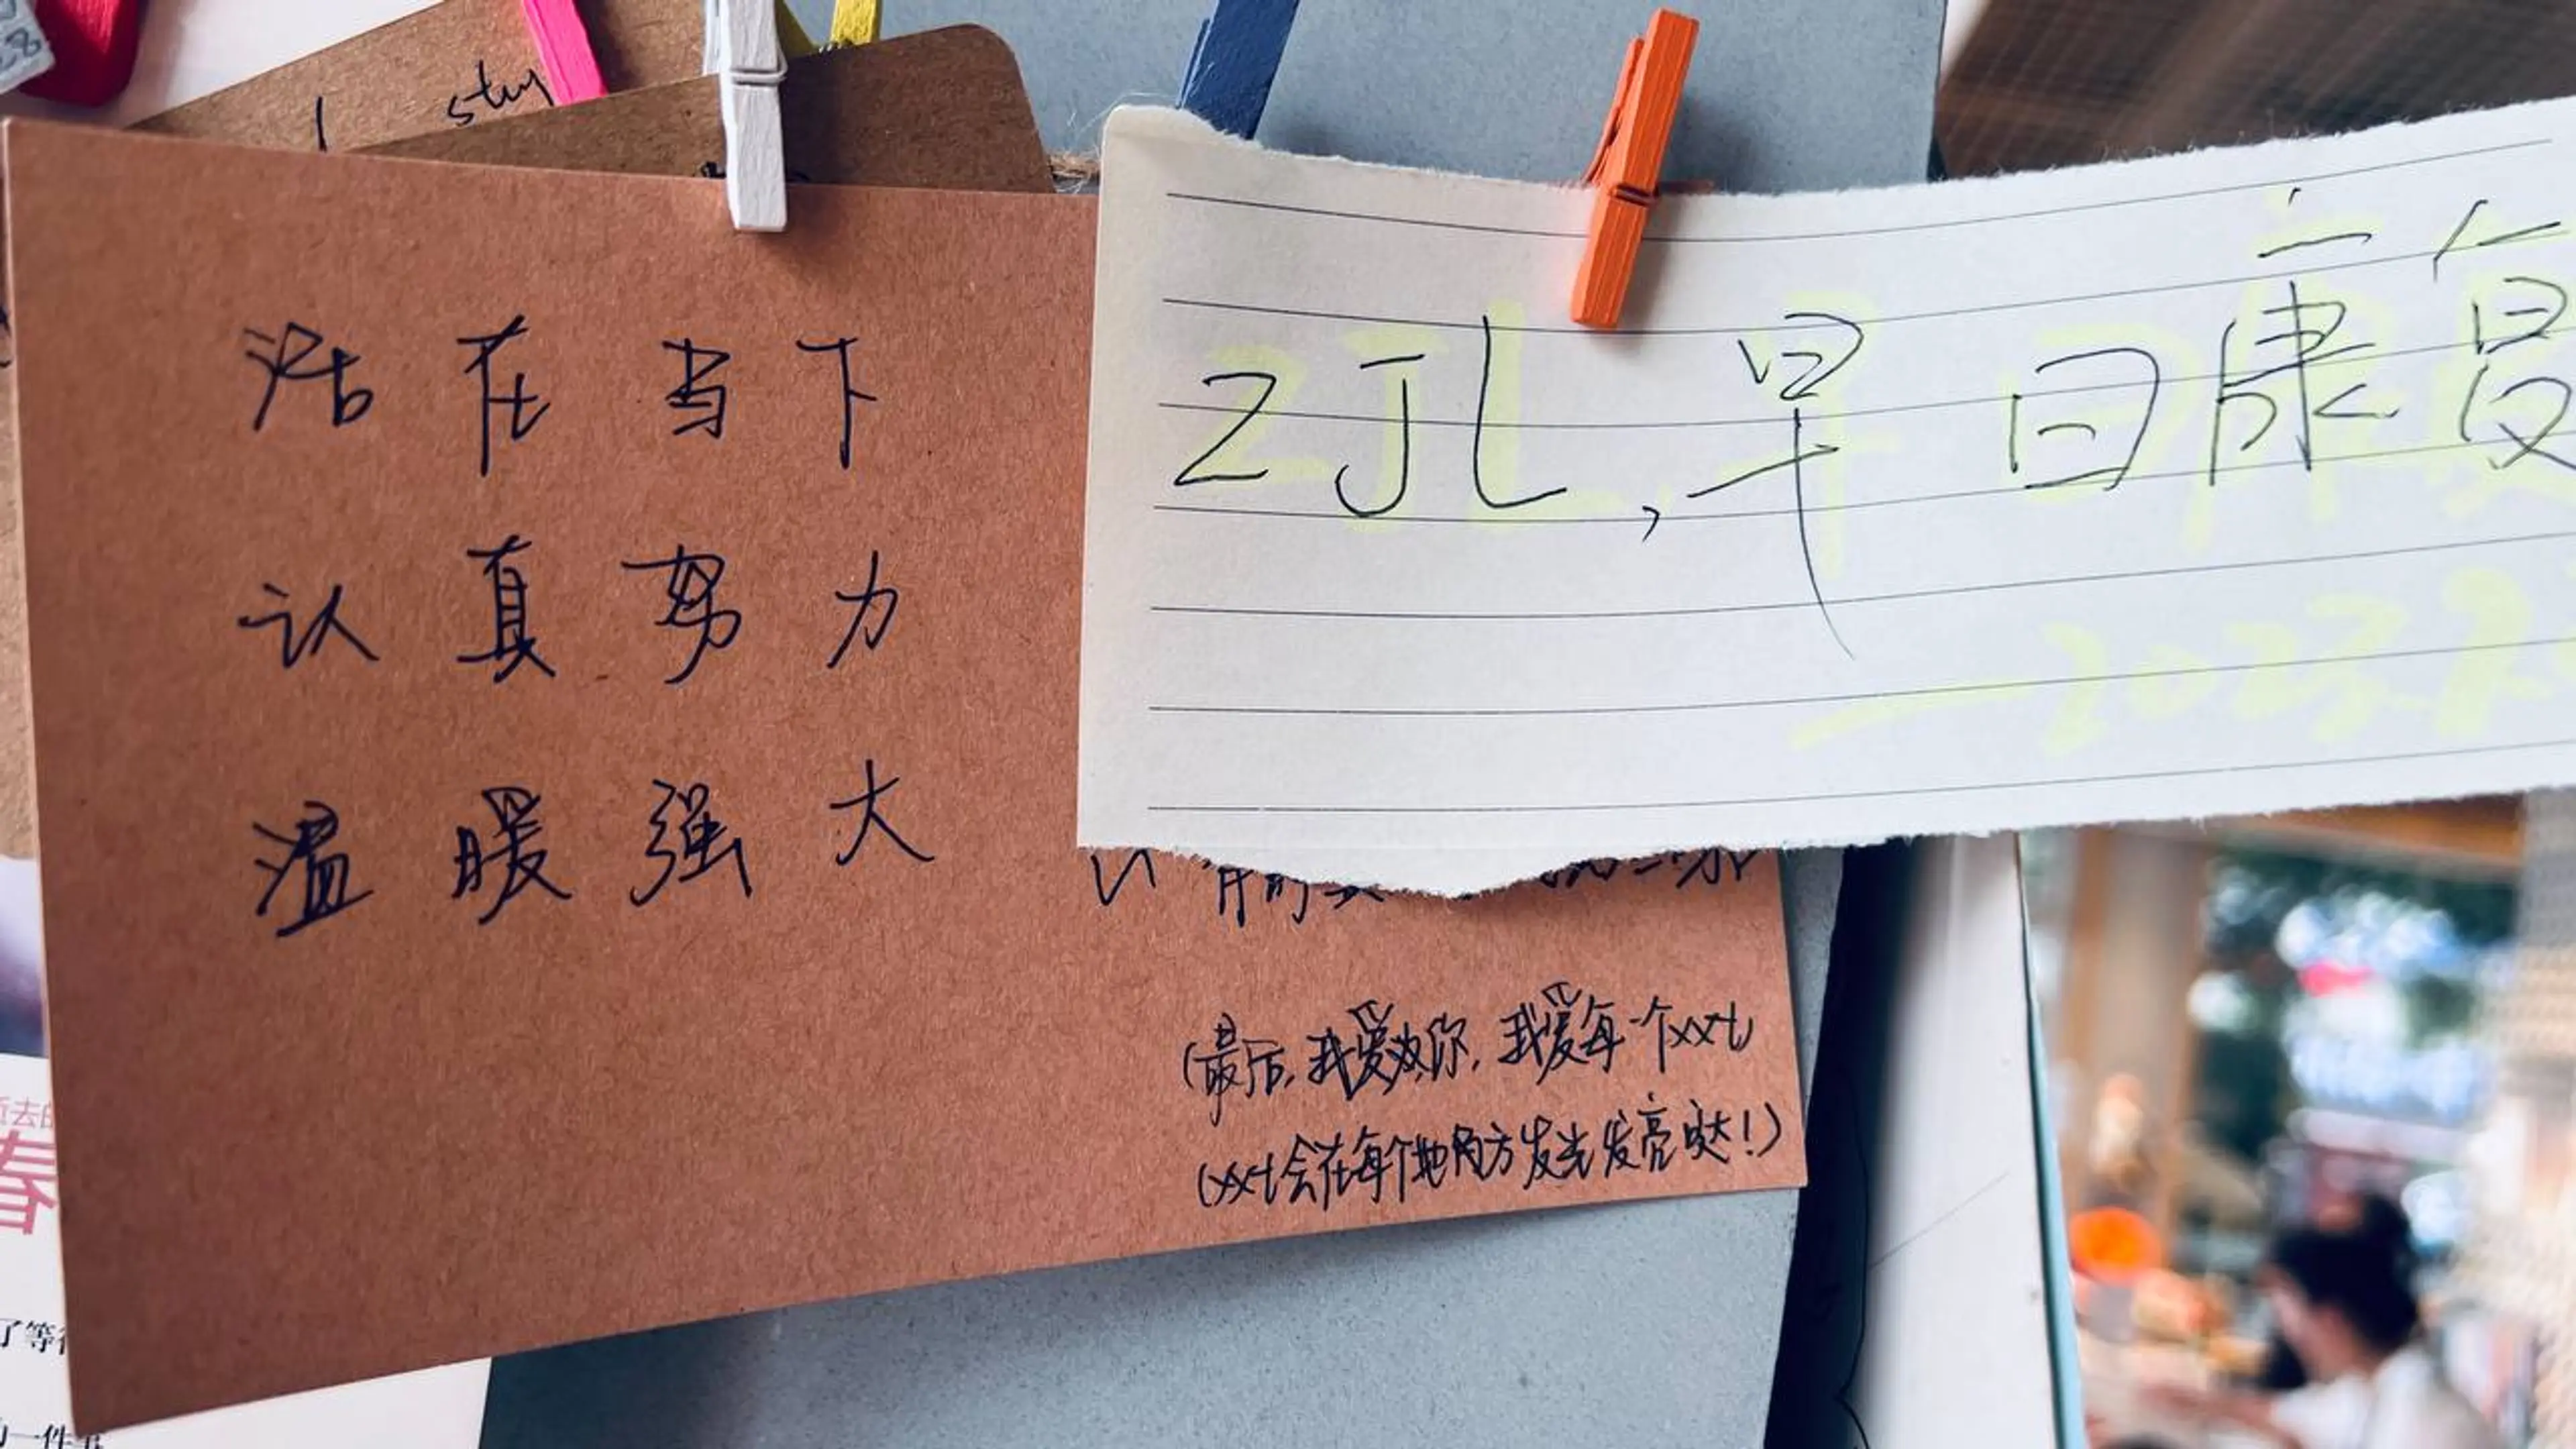 活在当下
认真努力
温暖强大
ZJL,早日康复
2023.
(最后,我爱你,我爱每一个xxt)
(xxt会在每个地方发光发亮哒!)
春
了等待
一件事